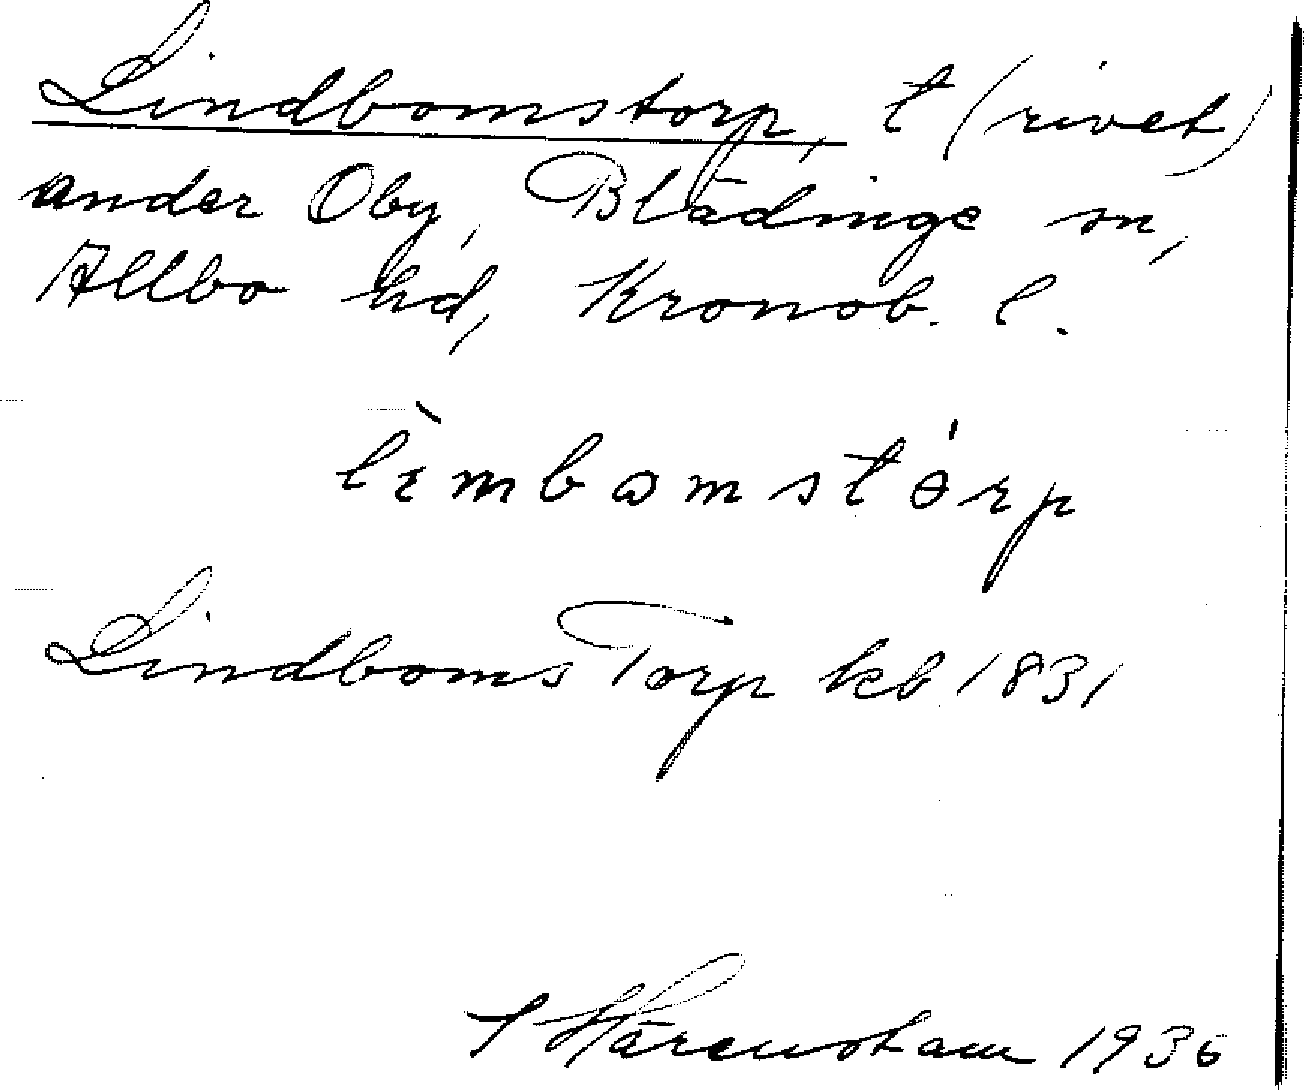 Lindbomstorp, t (rivet)
under Oby, Blädinge sn,
Allbo hd, Kronob. l.
lìmbomstórp
Lindboms Torp kb 1831
S Härenstam 1936